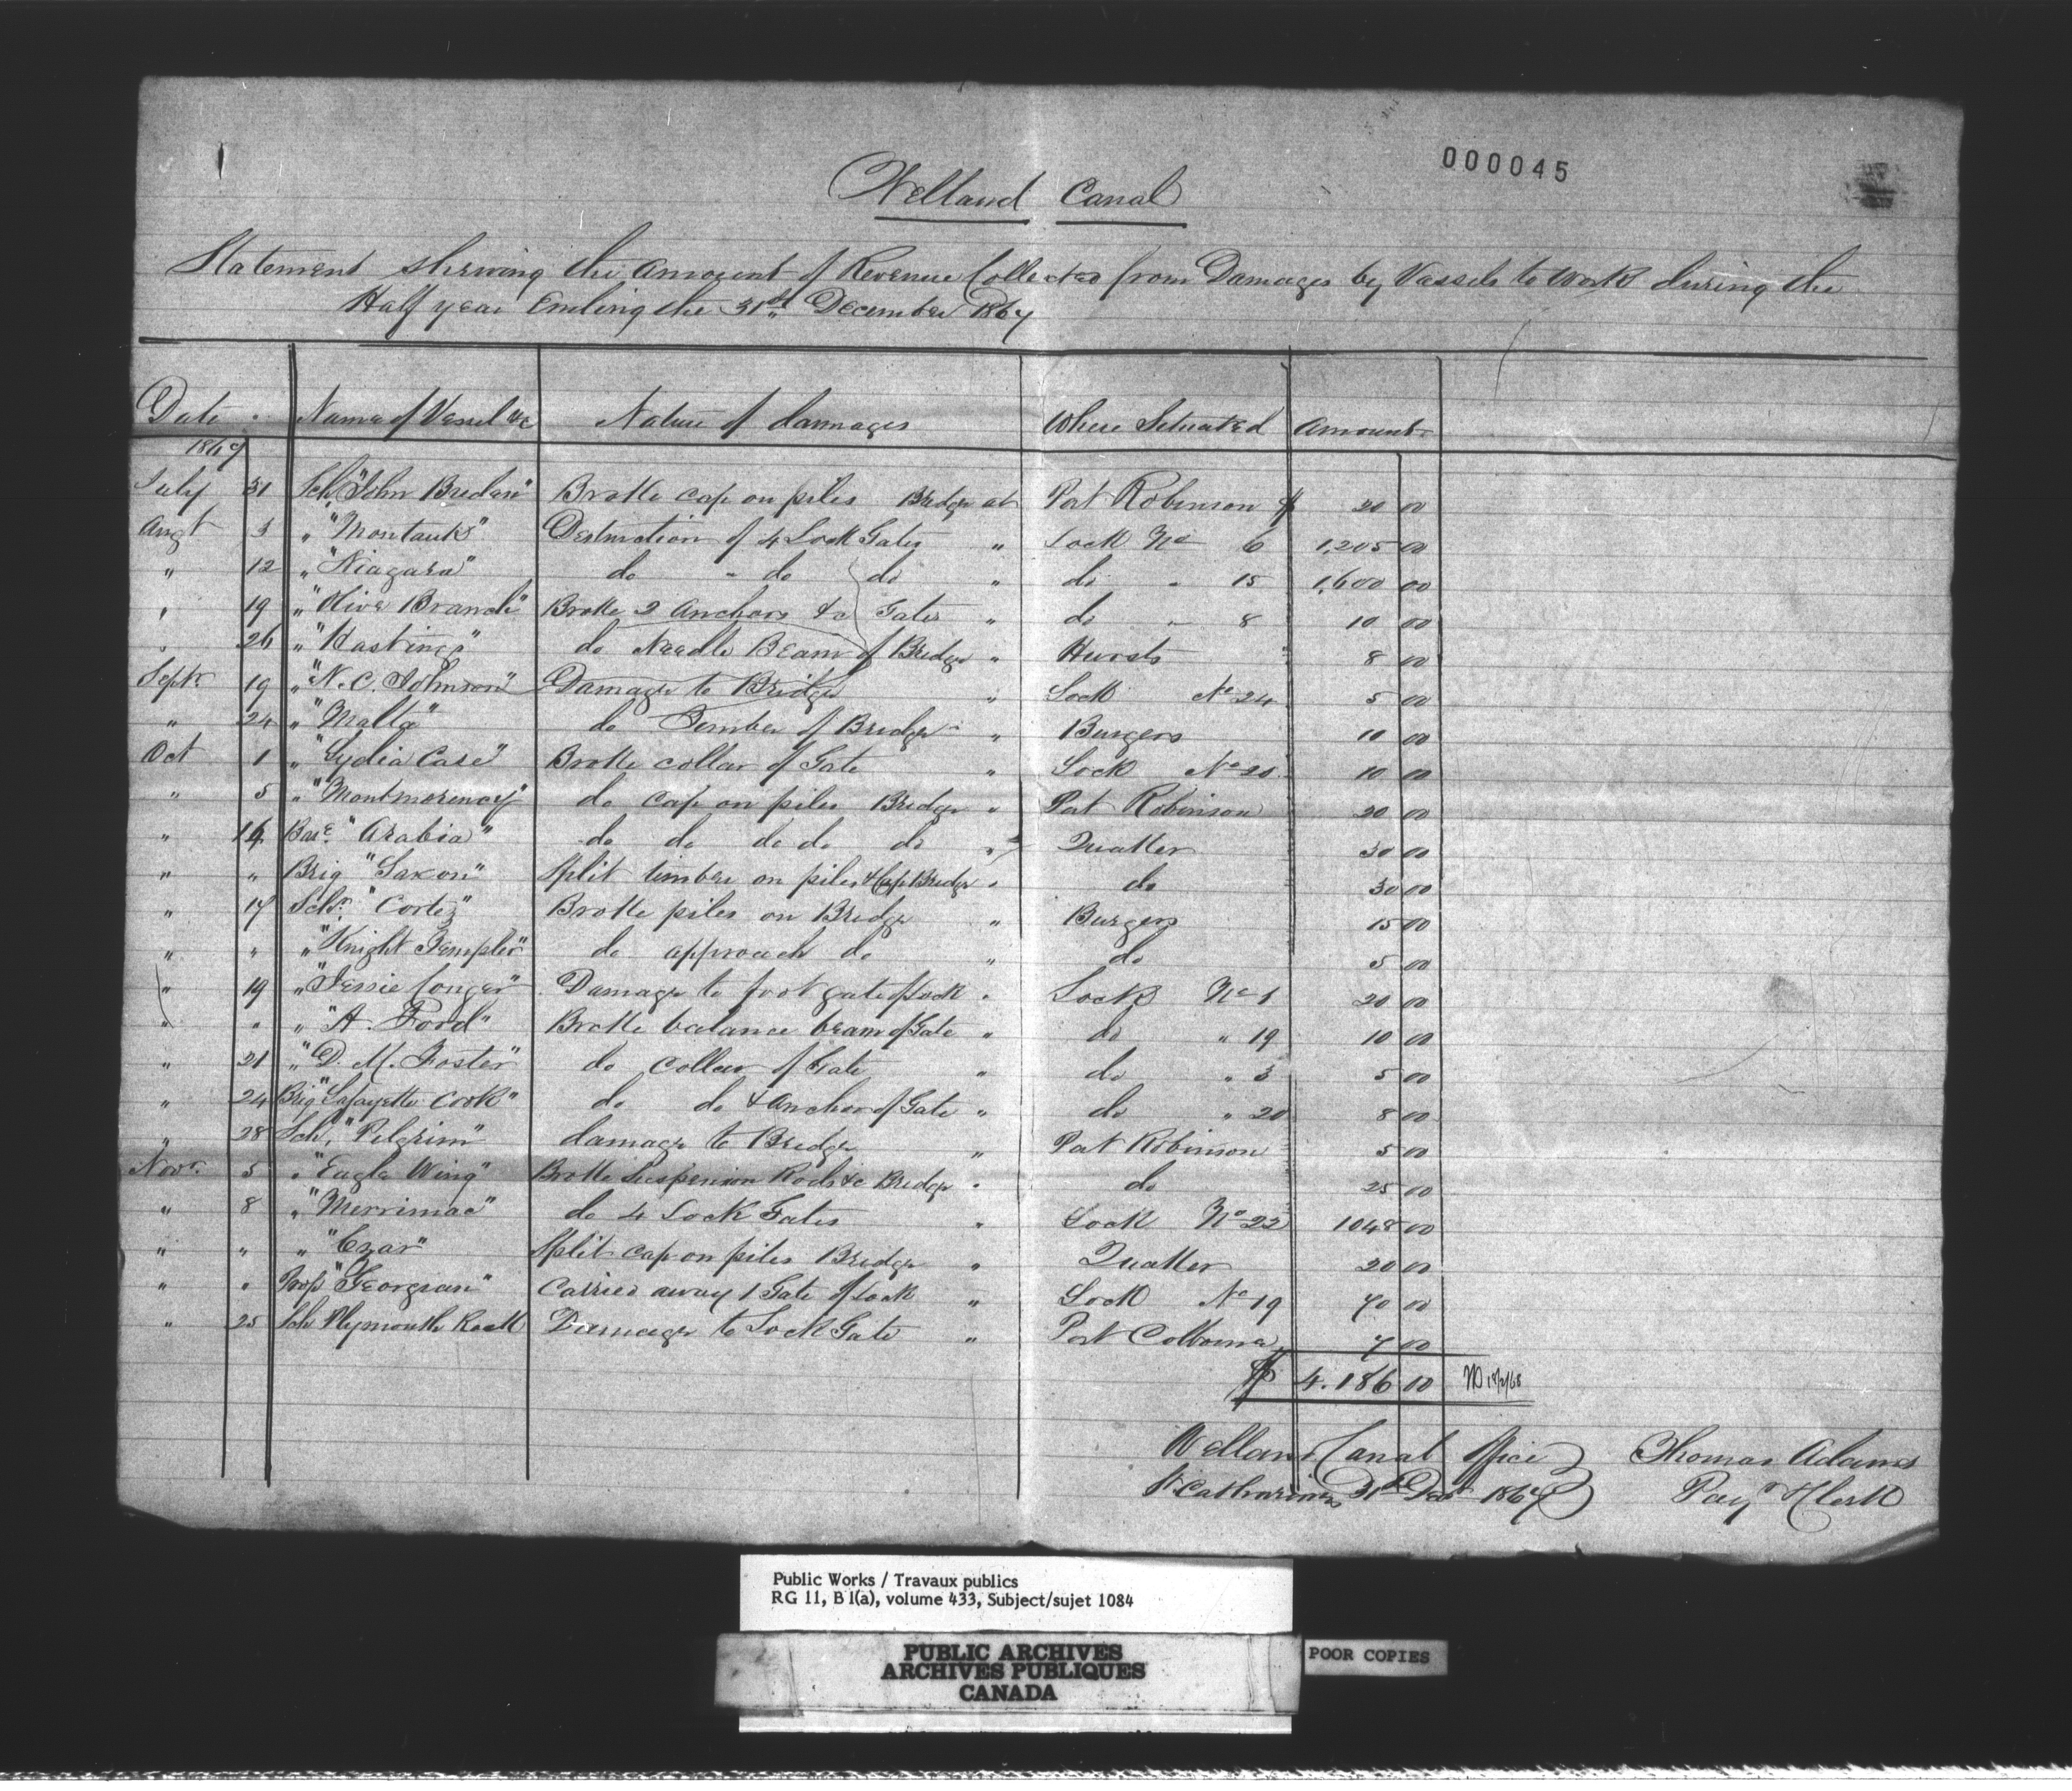 000045
Welland Canal
Statement shewing the Amount of Revenue Collected from Damages by Vessels to Work during the
Half year Ending the 31st December 1867
Date Name of Vessel &c Nature of damages Where Situated Amount
1867
July 31 Sch "John Bredan" Broke cap on piles Bridge at Port Robinson $ 20 00
Augt 3 " "Montauk" Destruction of 4 Lock Gates " Lock No 6 1,205 00
" 12 " "Niagara" do " do do " do " 15 1,600 00
" 19 " "Olive Branch" Broke 2 Anchors &c Gates " do " 8 10 00
" 26 " "Hastings" do Needle Beam of Bridge " Hursts " 8 00
Septr 19 " "N. C. Johnson" Damage to Bridge " Lock No 24 5 00
" 24 " "Malta" do Timber of Bridge " Burgers 10 00
Oct 1 " "Lydia Case" Broke collar of Gate " Lock No 20 10 00
" 5 " "Montmorency" do cap on piles Bridge " Port Robinson 20 00
" 16 Barе "Arabia" do do do do do " Quaker 30 00
" " Brig "Saxon" Split timber on piles & Cap Bridge " do 30 00
" 17 Schr "Cortez" Broke piles on Bridge " Burgers 15 00
" " " "Knight Templer" do approach do " do 5 00
" 19 " "Jessie Conger" Damage to foot gate of Lock " Lock No 1 20 00
" " " "A. Ford" Broke balance beam of Gate " do " 19 10 00
" 21 " "D. M. Foster" do Collar of Gate " do " 3 5 00
" 24 Brig "Lafayette Cook" do do & Anchor of Gate " do " 20 8 00
" 28 Sch. "Pilgrim" damage to Bridge " Port Robinson 5 00
Novr 5 " "Eagle Wing" Broke Suspension Rods &c Bridge " do 25 00
" 8 " "Merrimac" do 4 Lock Gates " Lock No 22 1048 00
" " " "Czar" Split cap on piles Bridge " Quaker 20 00
" " Prop "Georgian" Carried away 1 Gate of Lock " Lock No 19 70 00
" 25 Sch Plymouth Rock Damage to Lock Gate " Port Colborne 7 00
$ 4.186 00
Welland Canal Office } Thomas Adams
St Catharines 31st Decr 1867 } Payr Clerk
Public Works / Travaux publics
RG 11, B 1(a), volume 433, Subject/sujet 1084
PUBLIC ARCHIVES
ARCHIVES PUBLIQUES
CANADA
POOR COPIES